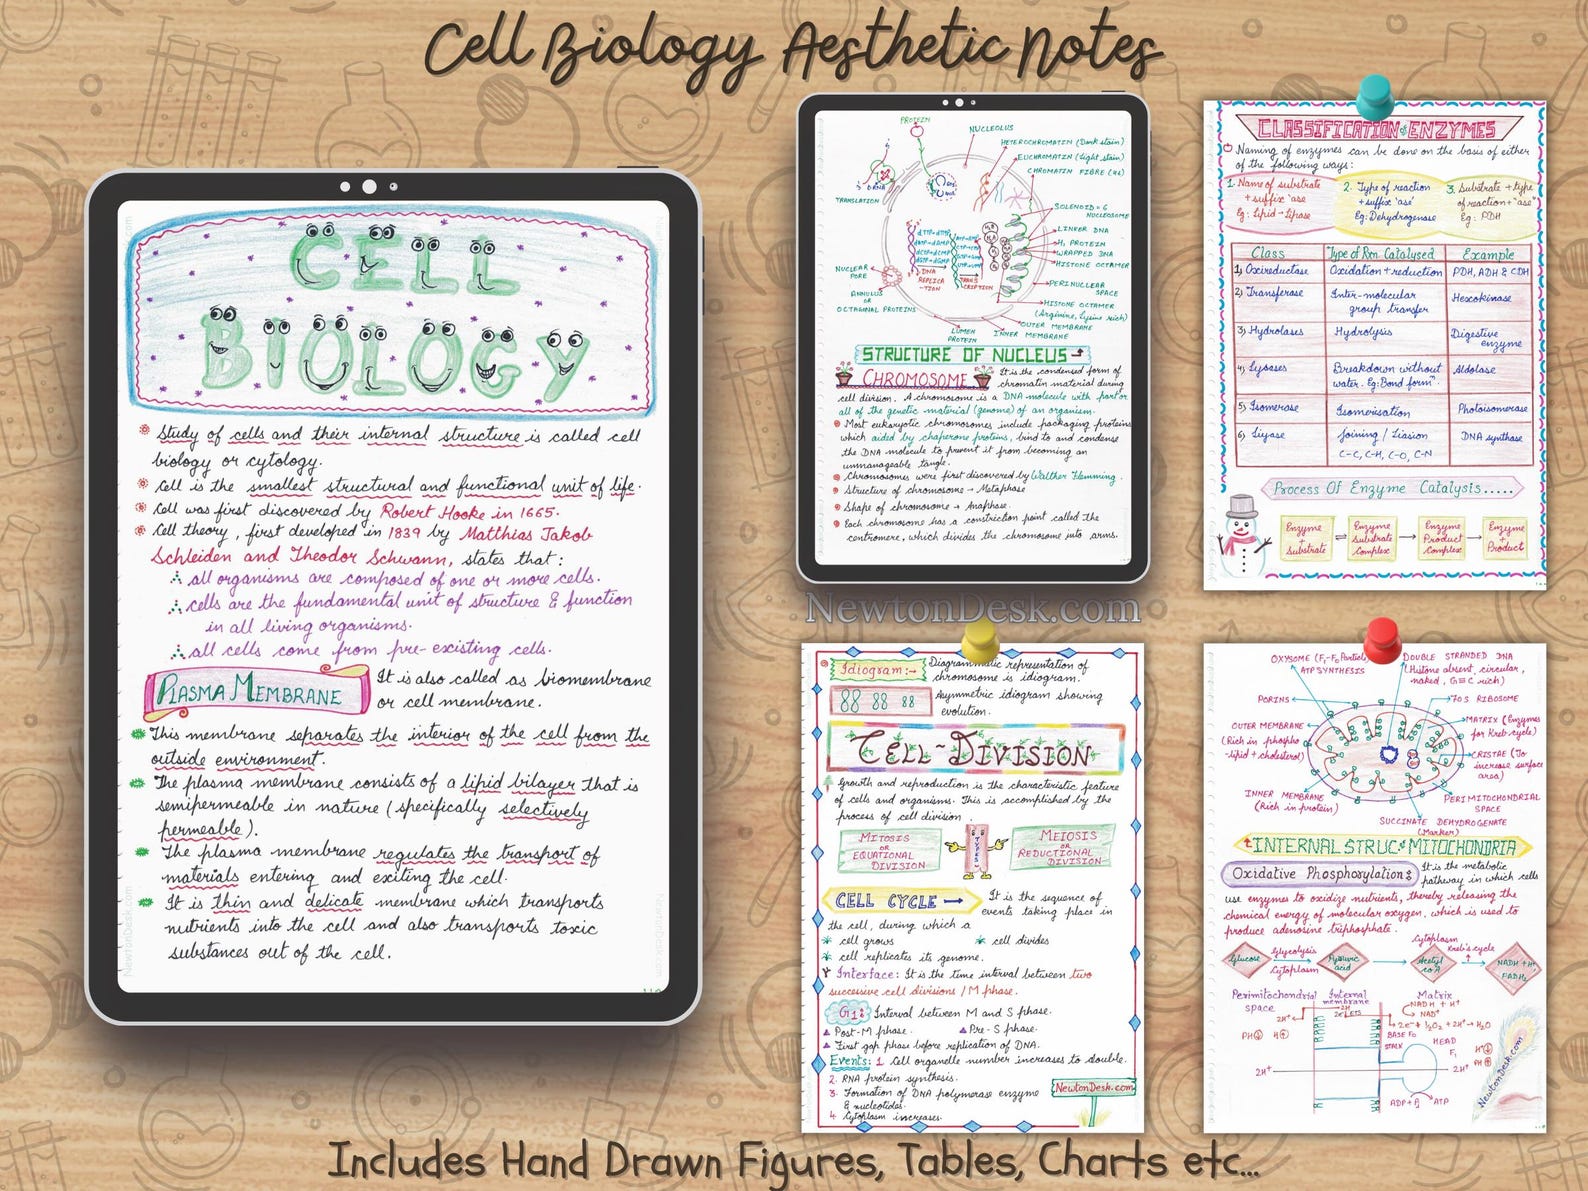 Cell Biology Aesthetic Notes
CELL
BIOLOGY
Study of cells and their internal structure is called cell
biology or cytology.
Cell is the smallest structural and functional unit of life.
Cell was first discovered by Robert Hooke in 1665.
Cell theory, first developed in 1839 by Matthias Jakob
Schleiden and Theodor Schwann, states that :
all organisms are composed of one or more cells.
cells are the fundamental unit of structure & function
in all living organisms.
all cells come from pre-existing cells.
PLASMA MEMBRANE
It is also called as biomembrane
or cell membrane.
This membrane separates the interior of the cell from the
outside environment.
The plasma membrane consists of a lipid bilayer that is
semipermeable in nature (specifically selectively
permeable).
The plasma membrane regulates the transport of
materials entering and exiting the cell.
It is thin and delicate membrane which transports
nutrients into the cell and also transports toxic
substances out of the cell.
PROTEIN
NUCLEOLUS
HETEROCHROMATIN (Dark stain)
EUCHROMATIN (Light stain)
CHROMATIN FIBRE
TRANSLATION
SOLENOID = 6
NUCLEOSOME
LINKER DNA
H1 PROTEIN
WRAPPED DNA
HISTONE OCTAMER
NUCLEAR
PORE
DNA
REPLICA
-TION
TRANS
CRIPTION
PERINUCLEAR
SPACE
ANNULUS
OR
OCTAGONAL PROTEINS
HISTONE OCTAMER
(Arginine, Lysine rich)
OUTER MEMBRANE
INNER MEMBRANE
LUMEN
PROTEIN
STRUCTURE OF NUCLEUS
CHROMOSOME
It is the condensed form of
chromatin material during
cell division. A chromosome is a DNA molecule with part or
all of the genetic material (genome) of an organism.
Most eukaryotic chromosomes include packaging proteins
which aided by chaperone proteins, bind to and condense
the DNA molecule to prevent it from becoming an
unmanageable tangle.
Chromosomes were first discovered by Walther Flemming.
Structure of chromosome → Metaphase
Shape of chromosome → Anaphase.
Each chromosome has a constriction point called the
centromere, which divides the chromosome into arms.
NewtonDesk.com
CLASSIFICATION of ENZYMES
Naming of enzymes can be done on the basis of either
of the following ways :
1. Name of substrate
+ suffix 'ase
Eg: Lipid → Lipase
2. Type of reaction
+ suffix 'ase'
Eg: Dehydrogenase
3. Substrate + type
of reaction + "ase"
Eg: PDH
Class Type of Rxn Catalysed Example
1) Oxireductase Oxidation + reduction PDH, ADH & CDH
2) Transferase Inter-molecular Hexokinase
group transfer
3) Hydrolases Hydrolysis Digestive
enzyme
4) Lyases Breakdown without Aldolase
water. Eg: Bond formⁿ.
5) Isomerase Isomerisation Photoisomerase
6) Ligase Joining / Liasion DNA synthase
C-C, C-H, C-O, C-N
Process Of Enzyme Catalysis.....
Enzyme
+
Substrate
⇌
Enzyme
Substrate
Complex
→
Enzyme
Product
Complex
→
Enzyme
+
Product
Idiogram:→
Diagrammatic representation of
chromosome is idiogram.
88 88 88
Asymmetric idiogram showing
evolution.
CELL-DIVISION
Growth and reproduction is the characteristic feature
of cells and organisms. This is accomplished by the
process of cell division
MITOSIS
OR
EQUATIONAL
DIVISION
TYPES
MEIOSIS
OR
REDUCTIONAL
DIVISION
CELL CYCLE →
It is the sequence of
events taking place in
the cell, during which a
cell grows
cell divides
cell replicates its genome.
Interface: It is the time interval between two
successive cell divisions / M phase.
G1: Interval between M and S phase.
Post-M phase.
Pre-S phase.
First gap phase before replication of DNA.
Events: 1 Cell organelle number increases to double.
2. RNA protein synthesis.
3. Formation of DNA polymerase enzyme
& nucleotides.
4. Cytoplasm increases.
NewtonDesk.com
OXYSOME (F1-F0 Particle)
ATP SYNTHESIS
DOUBLE STRANDED DNA
(Histone absent, circular,
naked, G≡C rich)
PORINS
70S RIBOSOME
OUTER MEMBRANE
(Rich in phospho
-lipid + cholesterol)
MATRIX (Enzymes
for Kreb cycle)
CRISTAE (To
increase surface
area)
INNER MEMBRANE
(Rich in protein)
PERIMITOCHONDRIAL
SPACE
SUCCINATE DEHYDROGENATE
(Marker)
INTERNAL STRUC. of MITOCHONDRIA
Oxidative Phosphorylation:
It is the metabolic
pathway in which cells
use enzymes to oxidize nutrients, thereby releasing the
chemical energy of molecular oxygen, which is used to
produce adenosine triphosphate.
Glucose
Glycolysis
Cytoplasm
Pyruvic
acid
Cytoplasm
Acetyl
co A
Kreb's cycle
NADH + H+,
FADH2
Perimitochondrial
space
Internal
membrane
Matrix
NADH + H+
NAD+
2H+
ETS
2e- + ½O2 + 2H+ → H2O
BASE F0
STALK
HEAD
F1
2H+
2H+
ADP + Pi
ATP
NewtonDesk.com
Includes Hand Drawn Figures, Tables, Charts etc...